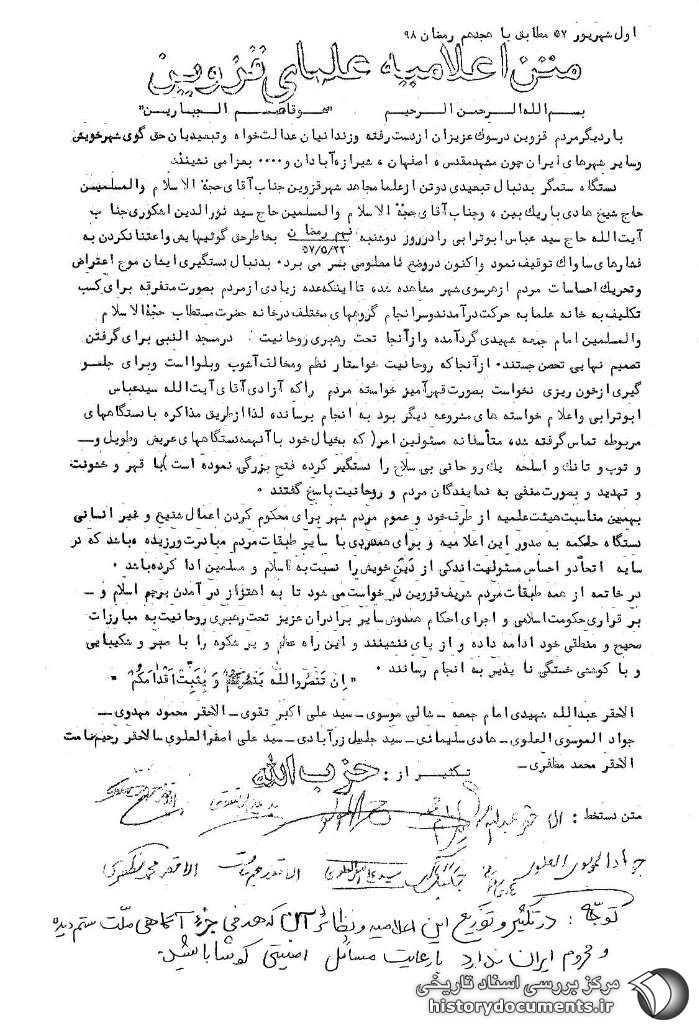 اول شهریور ۵۷ مطابق با هجدهم رمضان ۹۸
متن اعلامیه علمای قزوین
بسم الله الرحمن الرحیم "هو قاصم الجبارین"
بار دیگر مردم قزوین در سوک عزیزان از دست رفته و زندانیان عدالت‌خواه و تبعیدیان حق گوی شهر خویش
وسایر شهرهای ایران چون مشهد مقدس ه اصفهان ه شیراز ه آبادان و ۰۰۰۰ بعزا می نشینند
دستگاه ستمگر بدنبال تبعیدی دو تن از علما مجاهد شهر قزوین جناب آقای حجة الاسلام والمسلمین
حاج شیخ هادی باریک بین ه وجناب آقای حجة الاسلام والمسلمین حاج سید نورالدین اشکوری جناب
آیت الله حاج سید عباس ابوترابی را در روز دوشنبه نهم رمضان ۵۷/۵/۲۳ بخاطر حق گوئیهایش واعتنا نکردن به
فشارهای ساواک توقیف نمود واکنون در وضع نا معلومی بسر می برد ۰ بدنبال دستگیری ایشان موج اعتراض
وتحریک احساسات مردم از هر سوی شهر مشاهده شد تا اینکه عده زیادی از مردم بصورت متفرقه برای کسب
تکلیف به خانه علما به حرکت در آمدند و سرانجام گروههای مختلف در خانه حضرت مستطاب حجة الاسلام
والمسلمین امام جمعه شهیدی گرد آمده و از آنجا تحت رهبری روحانیت در مسجد النبی برای گرفتن
تصمیم نهایی تحصن جستند ۰ از آنجا که روحانیت خواستار نظم ومخالف آشوب وبلوا است وبرای جلو
گیری از خون ریزی نخواست بصورت قهرآمیز خواسته مردم را که آزادی آقای آیت الله سید عباس
ابوترابی واعلام خواسته های مشروعه دیگر بود به انجام برساند ه لذا از طریق مذاکره با دستگاههای
مربوطه تماس گرفته شد ه متأسفانه مسئولین امر ( که بخیال خود با آنهمه دستگاههای عریض وطویل و
و توپ و تانک و اسلحه یک روحانی بی سلاح را دستگیر کرده فتح بزرگی نموده است ) با قهر و خشونت
و تهدید و بصورت منفی به نمایندگان مردم و روحانیت پاسخ گفتند ۰
بهمین مناسبت هیئت علمیه از طرف خود و عموم مردم شهر برای محکوم کردن اعمال شنیع و غیر انسانی
دستگاه حاکمه به صدور این اعلامیه و برای همدردی با سایر طبقات مردم مبادرت ورزیده ه باشد که در
سایه اتحاد و احساس مسئولیت اندکی از دین خویش را نسبت به اسلام و مسلمین ادا کرده باشد ۰
در خاتمه از همه طبقات مردم شریف قزوین درخواست می شود تا به اهتزاز در آمدن پرچم اسلام و
بر قراری حکومت اسلامی و اجرای احکام همدوش سایر برادران عزیز تحت رهبری روحانیت به مبارزات
صحیح و منطقی خود ادامه داده و از پای ننشینند و این راه عظیم و پر شکوه را با صبر و شکیبایی
و با کوششی خستگی نا پذیر به انجام رسانند ۰
"اِن تَنصُروا الله یَنصُرکُم وَ یُثَبِّت اَقدامَکُم"
الاحقر عبدالله شهیدی امام جمعه – مثالی موسوی – سید علی اکبر تقوی – الاحقر محمود مهدوی –
جواد الموسوی العلوی – هادی سلیمانی – سید جلیل زرآبادی – سید علی اصغر العلوی – الاحقر رحیم
الاحقر محمد مظفری –
تکثیر از : حزب الله
متن دستخط : الاحقر عبدالله
جواد الموسوی العلوی الاحقر محمد مظفری
توجه : در تکثیر و توزیع این اعلامیه و نظائر آن که هدفی جز آگاهی ملت ستم دیده
و محروم ایران ندارد با رعایت مسائل امنیتی کوشا باشید.
مرکز بررسی اسناد تاریخی
historydocuments.ir